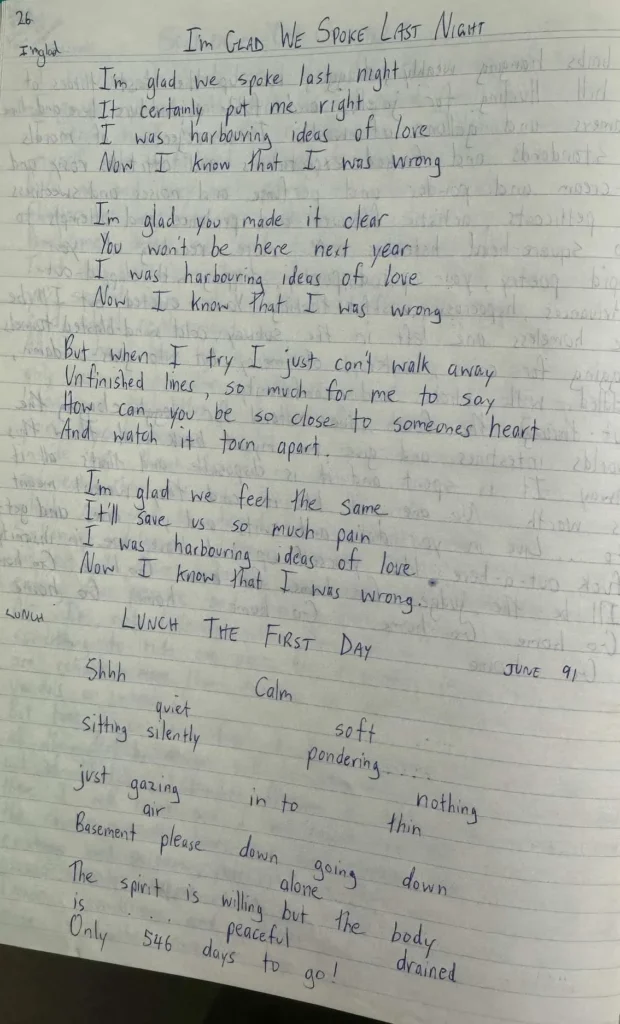 26
I'm glad
I'm GLAD WE SPOKE LAST NIGHT
I'm glad we spoke last night
It certainly put me right
I was harbouring ideas of love
Now I know that I was wrong
I'm glad you made it clear
You won't be here next year
I was harbouring ideas of love
Now I know that I was wrong
But when I try I just can't walk away
Unfinished lines, so much for me to say
How can you be so close to someones heart
And watch it torn apart.
I'm glad we feel the same
It'll save us so much pain
I was harbouring ideas of love
Now I know that I was wrong.
LUNCH
LUNCH THE FIRST DAY
JUNE 91
Shhh Calm
quiet soft
sitting silently pondering.....
just gazing in to nothing
air thin
Basement please down going down
alone
The spirit is willing but the body
is . . . peaceful drained
Only 546 days to go!